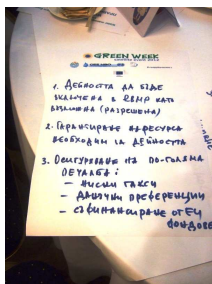 GREEN WEEK
1. ДЕЙНОСТА ДА БЪДЕ
ВКЛЮЧЕНА В RBMP КАТО
ВЪЗМОЖНА (РАЗРЕШЕНА)
2. ГАРАНСИРАНЕ НА РЕСУРСА
НЕОБХОДИМ ЗА ДЕЙНОСТА
3. ОСИГУРЯВАНЕ НА ПО-ГОЛЯМА
ПЕЧАЛБА:
- НИСКИ ТАКСИ
- ДАНЪЧНИ ПРЕФЕРЕНЦИИ
- СЪФИНАНСИРАНЕ ОТ ЕЦ
ФОНДОВЕ